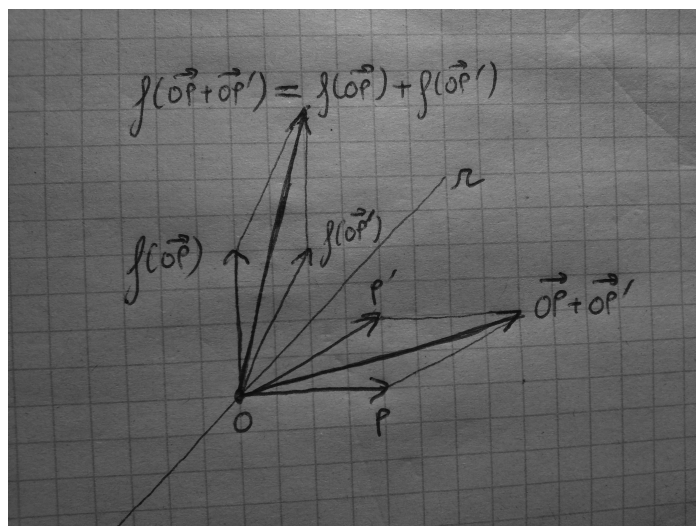 f(O⃗P⃗+O⃗P⃗') = f(O⃗P⃗)+f(O⃗P⃗')
r
f(O⃗P⃗)
f(O⃗P⃗')
P'
O⃗P⃗+O⃗P⃗'
O
P